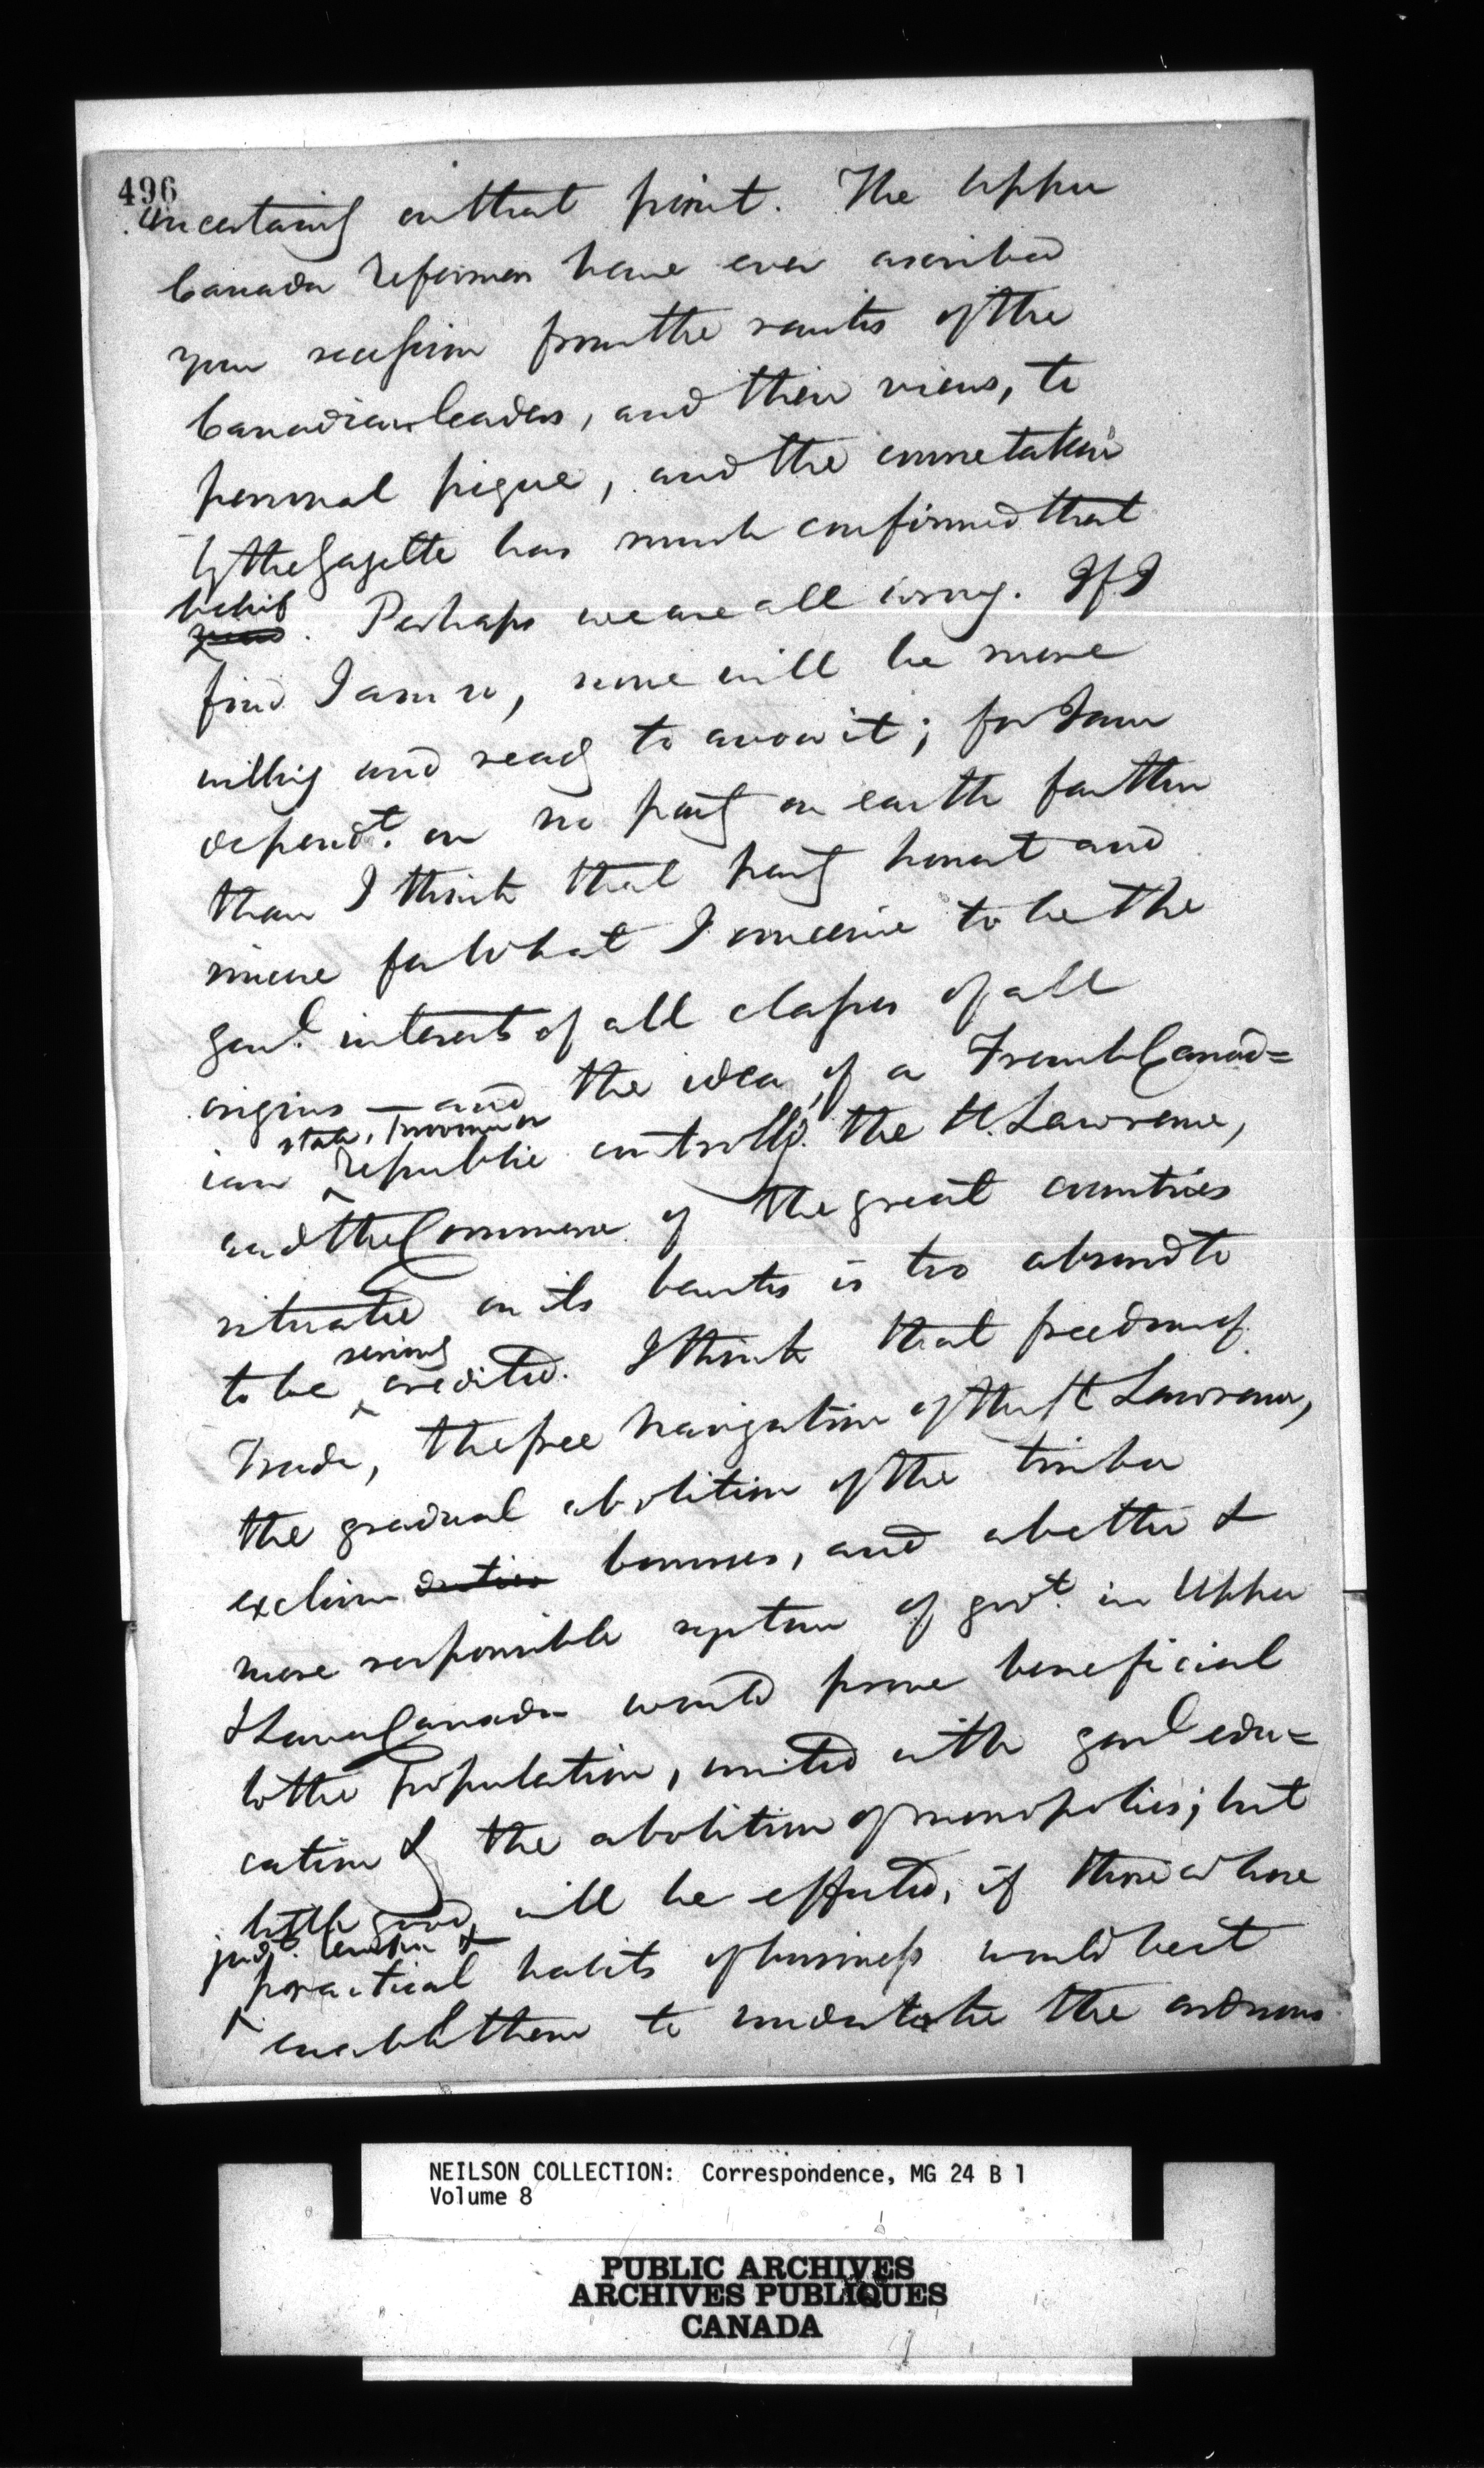 496
uncertainty on that point. The Upper
Canada Reformers have ever ascribed
your secession from the ranks of the
Canadian leaders, and their views, to
personal pique, and the course taken
by the Gazette has much confirmed that
belief
. Perhaps we are all wrong. If I
find I am so, none will be more
willing and ready to avow it; for I am
depend.t on no party on earth farther
than I think that party honest and
sincere for what I conceive to be the
gen.l interests of all classes of all
origins — and the idea of a French Canad=
state, Province or
ian republic controllg. the St. Lawrence,
and the Commerce of the great countries
situated on its banks is too absurd to
seriously
to be credited. I think that freedom of
Trade, the free navigation of the St Lawrence,
the gradual abolition of the timber
exclusive duties bonuses, and a better &
more responsible system of govt. in Upper
& Lower Canada would prove beneficial
to the population, united with genl edu=
cation & the abolition of monopolies; but
little good will be effected, if those whose
judt.
practical habits of business would best
enable them to undertake the arduous
NEILSON COLLECTION: Correspondence, MG 24 B 1
Volume 8
PUBLIC ARCHIVES
ARCHIVES PUBLIQUES
CANADA